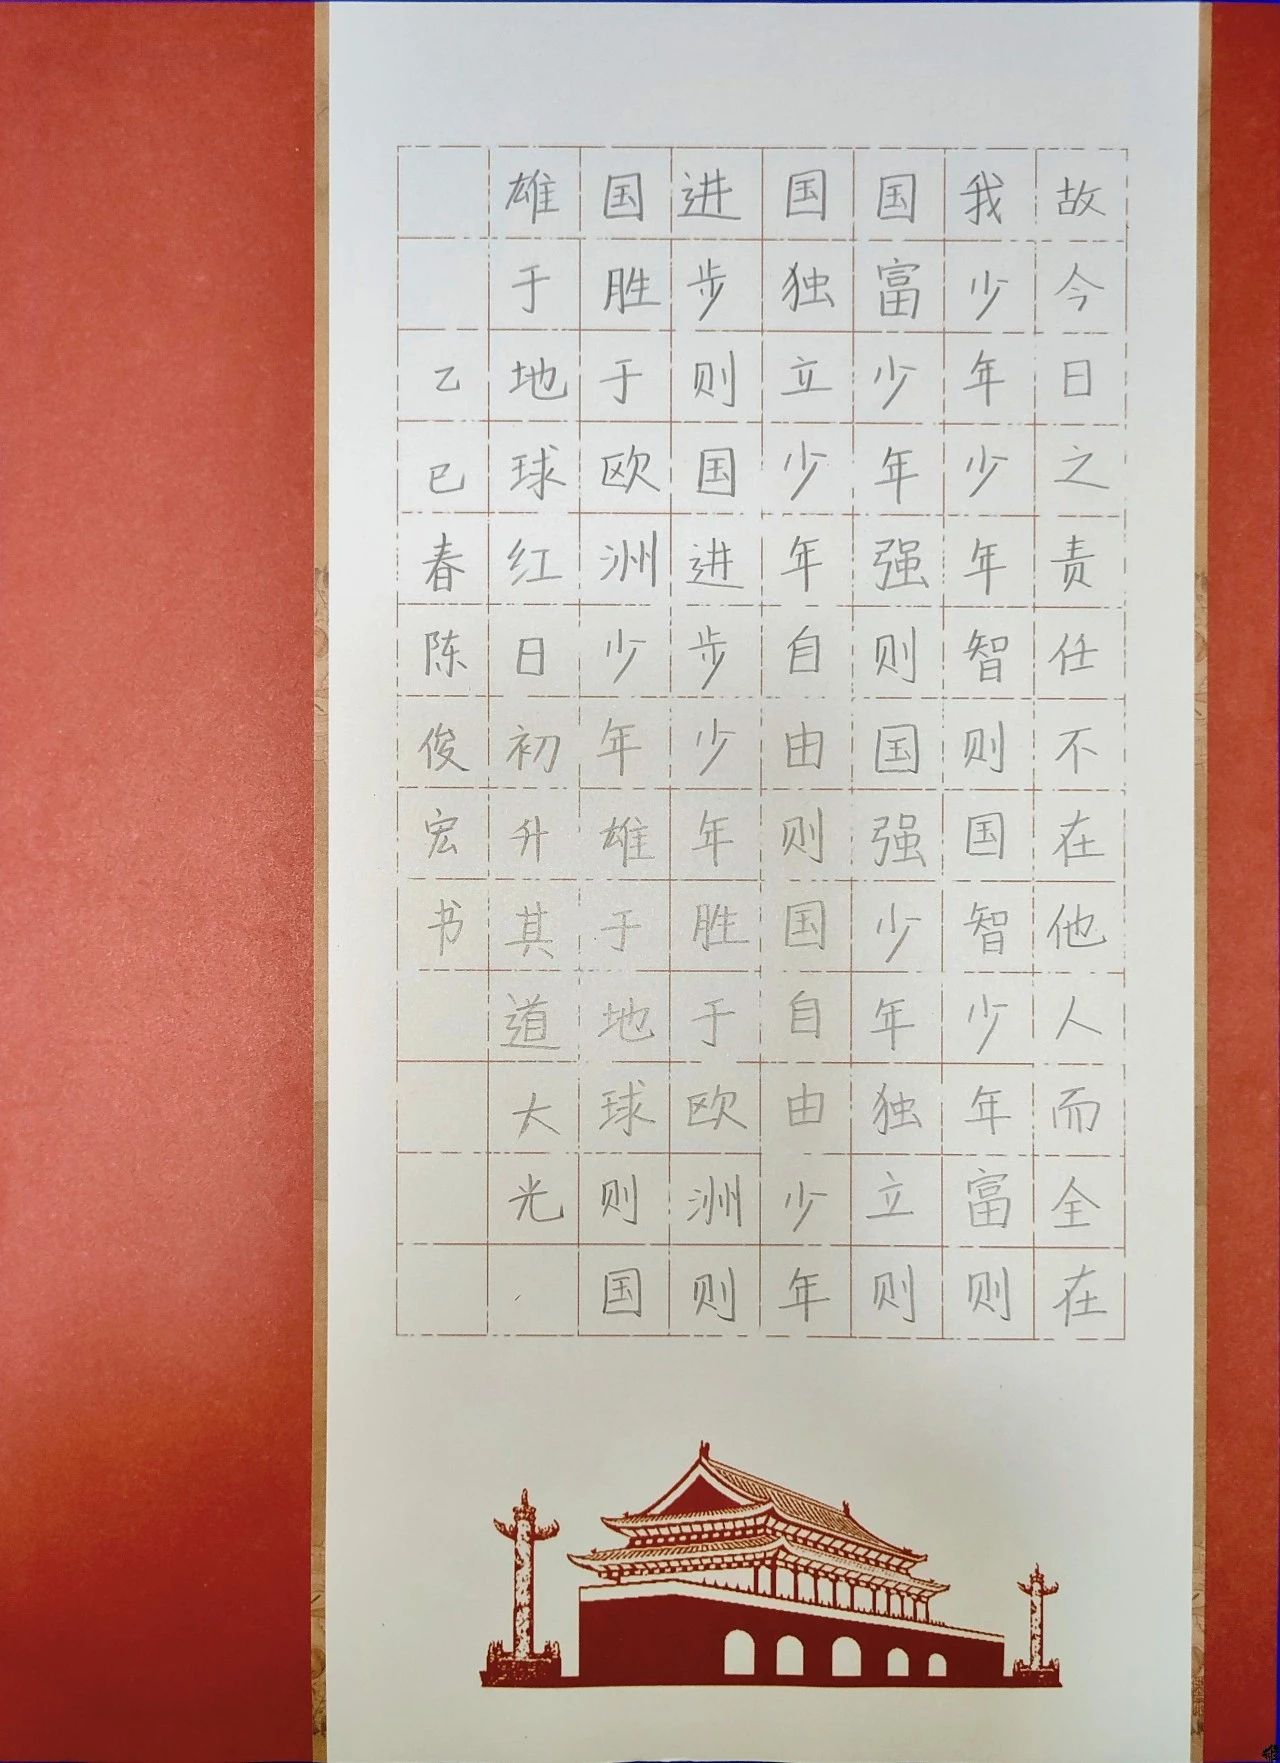 故今日之责任不在他人而全在
我少年少年智则国智少年富则
国富少年强则国强少年独立则
国独立少年自由则国自由少年
进步则国进步少年胜于欧洲则
国胜于欧洲少年雄于地球则国
雄于地球红日初升其道大光
乙巳春陈俊宏书